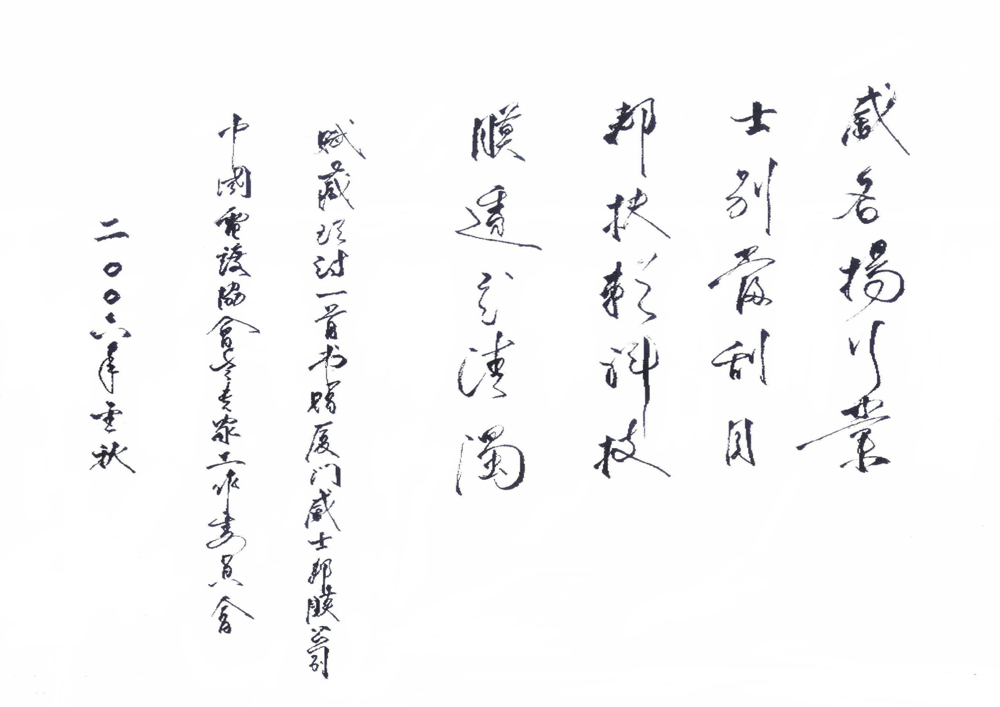 威名揚行業
士别當刮目
邦扶赖科技
膜透清濁
赋藏頭詩一首书赠厦门威士邦膜公司
中國電鍍協會老专家工作委員會
二〇〇六年金秋